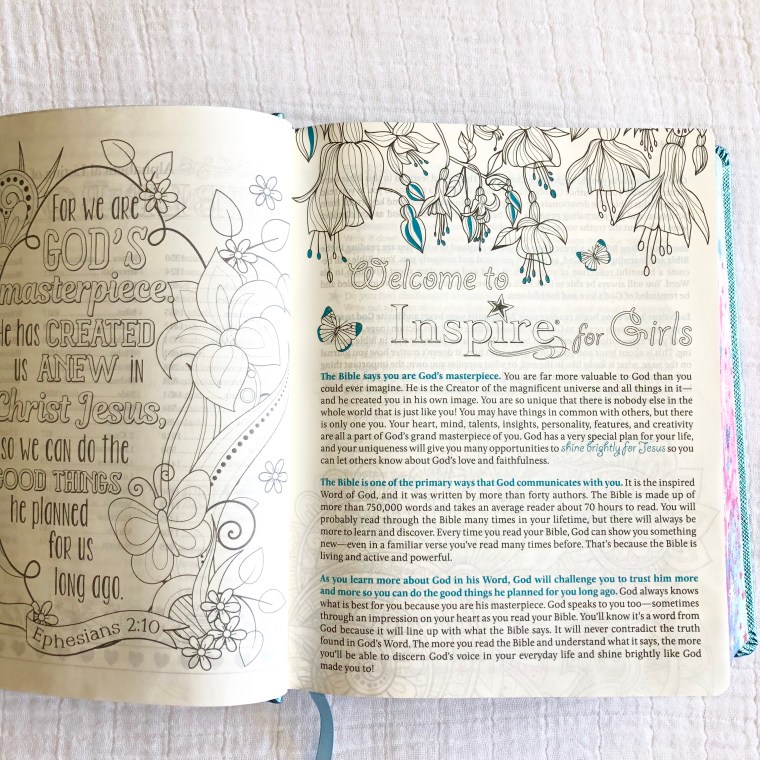 For we are
God's
masterpiece.
He has created
us anew in
Christ Jesus,
so we can do the
good things
he planned
for us
long ago.
Ephesians 2:10
Welcome to
Inspire® for Girls
The Bible says you are God's masterpiece. You are far more valuable to God than you
could ever imagine. He is the Creator of the magnificent universe and all things in it—
and he created you in his own image. You are so unique that there is nobody else in the
whole world that is just like you! You may have things in common with others, but there
is only one you. Your heart, mind, talents, insights, personality, features, and creativity
are all a part of God's grand masterpiece of you. God has a very special plan for your life,
and your uniqueness will give you many opportunities to shine brightly for Jesus so you
can let others know about God's love and faithfulness.
The Bible is one of the primary ways that God communicates with you. It is the inspired
Word of God, and it was written by more than forty authors. The Bible is made up of
more than 750,000 words and takes an average reader about 70 hours to read. You will
probably read through the Bible many times in your lifetime, but there will always be
more to learn and discover. Every time you read your Bible, God can show you something
new—even in a familiar verse you've read many times before. That's because the Bible is
living and active and powerful.
As you learn more about God in his Word, God will challenge you to trust him more
and more so you can do the good things he planned for you long ago. God always knows
what is best for you because you are his masterpiece. God speaks to you too—sometimes
through an impression on your heart as you read your Bible. You'll know it's a word from
God because it will line up with what the Bible says. It will never contradict the truth
found in God's Word. The more you read the Bible and understand what it says, the more
you'll be able to discern God's voice in your everyday life and shine brightly like God
made you to!